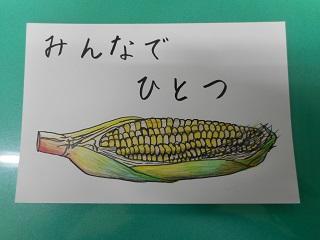 みんなで
ひとつ